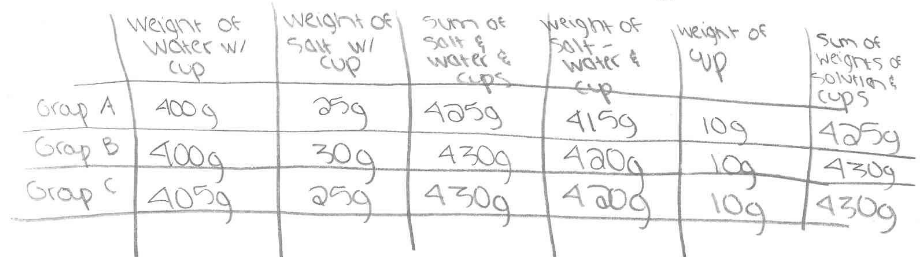 weight of water w/ cup | weight of salt w/ cup | sum of salt & water & cups | weight of salt-water & cup | weight of cup | sum of weights of solution & cups
Group A | 400g | 25g | 425g | 415g | 10g | 425g
Group B | 400g | 30g | 430g | 420g | 10g | 430g
Group C | 405g | 25g | 430g | 420g | 10g | 430g